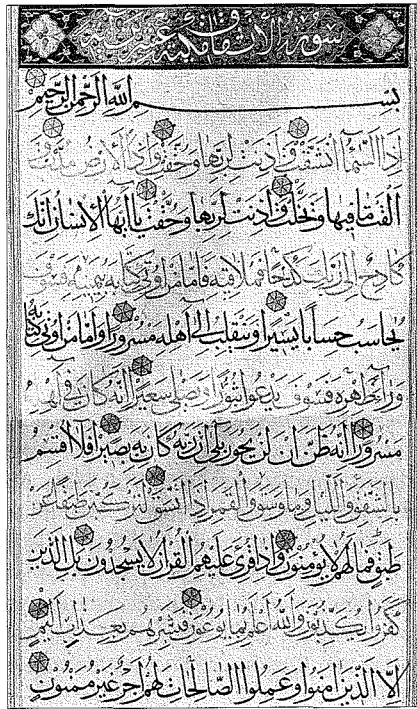 سورة الانشقاق مكية
بسم الله الرحمن الرحيم
إذا السماء انشقت وأذنت لربها وحقت وإذا الأرض مدت و
ألقت ما فيها وتخلت وأذنت لربها وحقت يا أيها الإنسان إنك
كادح إلى ربك كدحا فملاقيه فأما من أوتي كتابه بيمينه فسوف
يحاسب حسابا يسيرا وينقلب إلى أهله مسرورا وأما من أوتي كتابه
وراء ظهره فسوف يدعوا ثبورا ويصلى سعيرا إنه كان في أهله
مسرورا إنه ظن أن لن يحور بلى إن ربه كان به بصيرا فلا أقسم
بالشفق والليل وما وسق والقمر إذا اتسق لتركبن طبقا عن
طبق فما لهم لا يؤمنون وإذا قرئ عليهم القرآن لا يسجدون بل الذين
كفروا يكذبون والله أعلم بما يوعون فبشرهم بعذاب أليم
إلا الذين آمنوا وعملوا الصالحات لهم أجر غير ممنون